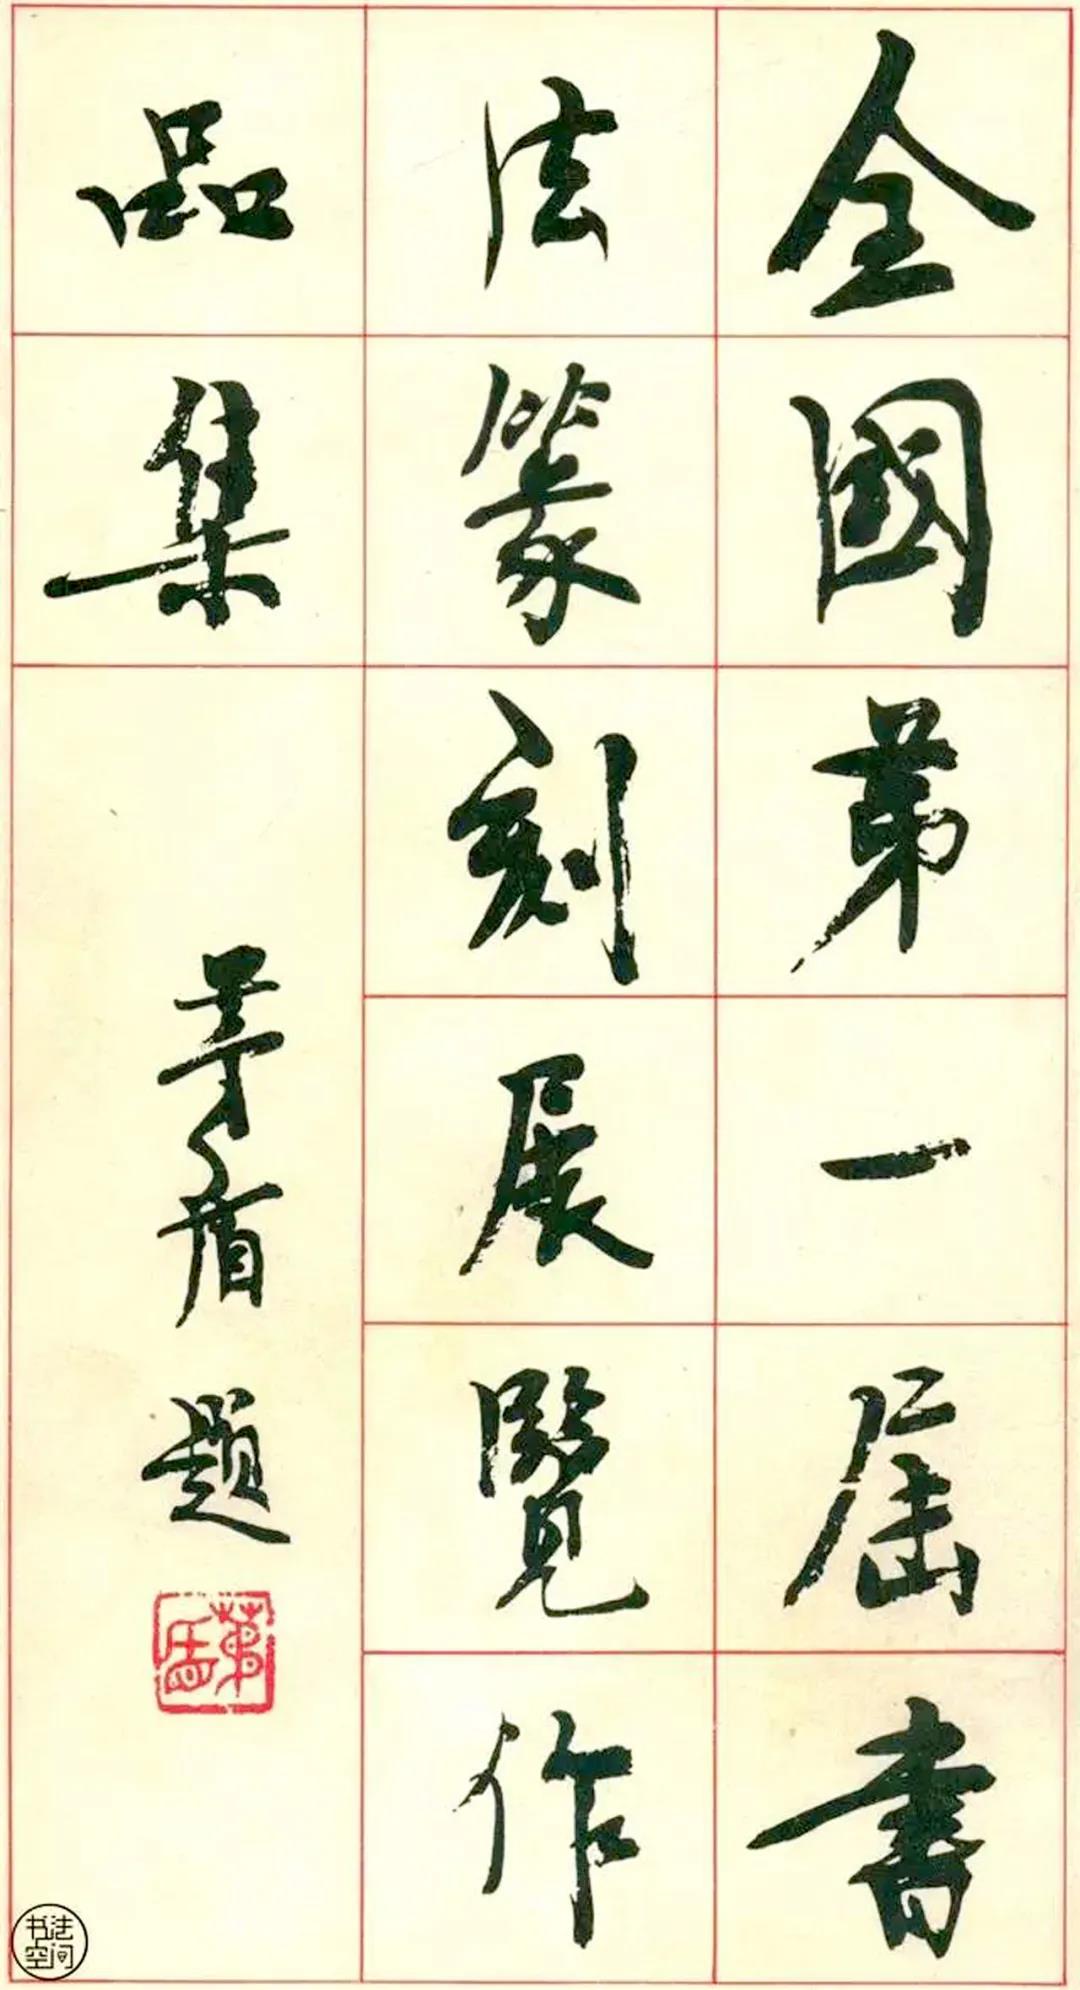 全國第一屆書
法篆刻展覽作
品集
茅盾题
书法
空间